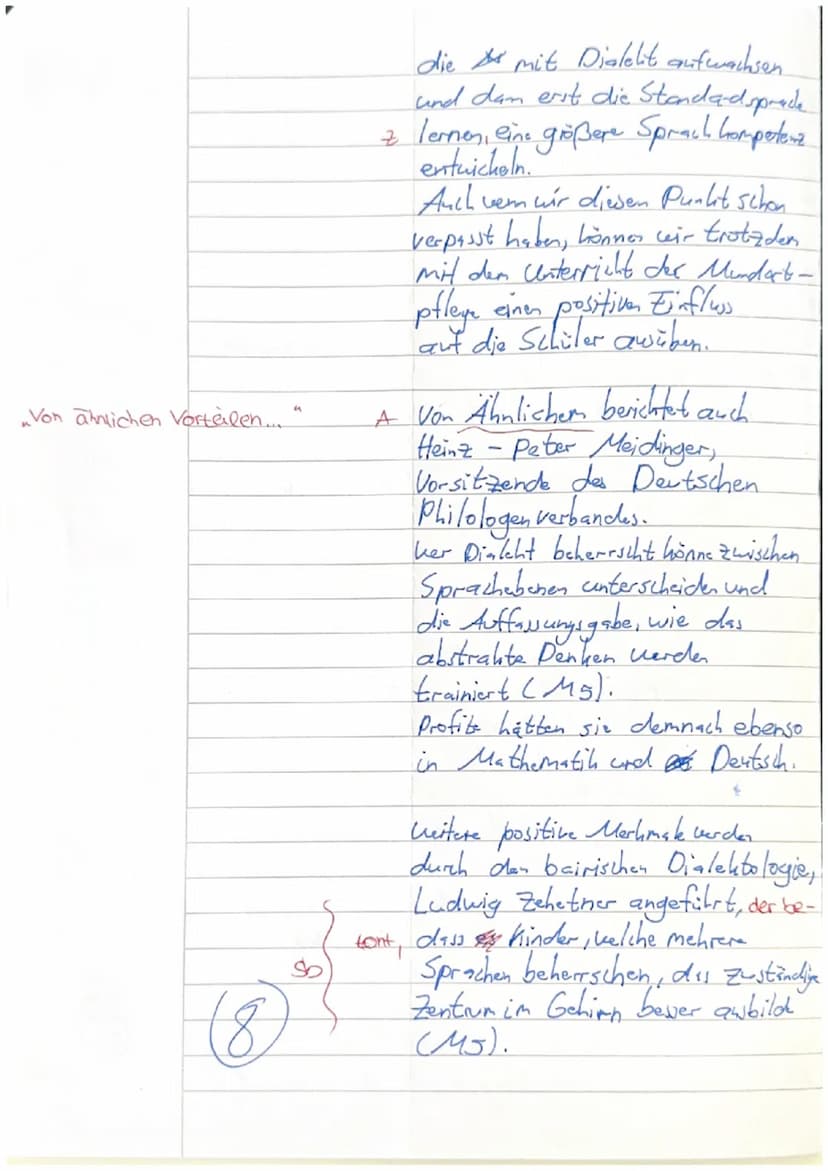 die mit Dialekt aufwachsen
und dann erst die Standardsprache
Z lernen, eine größere Sprachkompetenz
entwickeln.
Auch wenn wir diesen Punkt schon
verpasst haben, können wir trotzdem
mit dem Unterricht der Mundart-
pflege einen positiven Einfluss
auf die Schüler ausüben.
„Von ähnlichen Vorteilen..." A Von Ähnlichem berichtet auch
Heinz - Peter Meidinger,
Vorsitzende des Deutschen
Philologenverbandes.
Wer Dialekt beherrscht könne zwischen
Sprachebenen unterscheiden und
die Auffassungsgabe, wie das
abstrakte Denken werden
trainiert (M5).
Profite hätten sie demnach ebenso
in Mathematik und Deutsch.
Weitere positive Merkmale werden
durch den bairischen Dialektologie,
Ludwig Zehetner angeführt, der be-
tont, dass Kinder, welche mehrere
Sb Sprachen beherrschen, das zuständige
8 Zentrum im Gehirn besser ausbild
(M5).